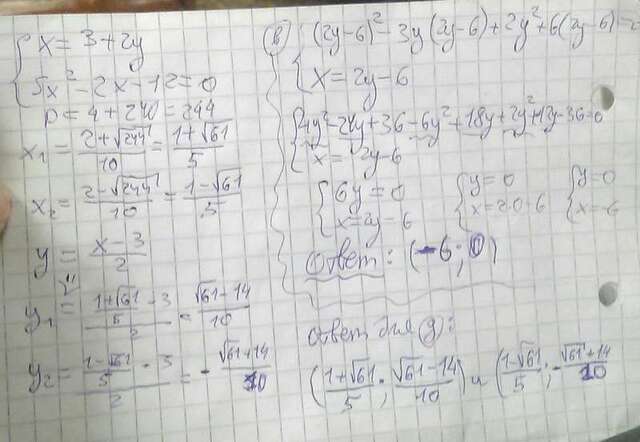 x = 3+2y
5x² - 2x - 12 = 0
D = 4 + 240 = 244
x₁ = (2+√244)/10 = (1+√61)/5
x₂ = (2-√244)/10 = (1-√61)/5
y = (x-3)/2
y₁ = ((1+√61)/5 - 3)/2 = (√61-14)/10
y₂ = ((1-√61)/5 - 3)/2 = - (√61+14)/10
в) (2y-6)² - 3y(2y-6) + 2y² + 6(2y-6) =
x = 2y-6
4y² - 24y + 36 - 6y² + 18y + 2y² + 12y - 36 = 0
x = 2y-6
6y = 0 y = 0 y = 0
x = 2y - 6 x = 2·0-6 x = -6
Ответ: (-6; 0)
ответ для g):
((1+√61)/5 ; (√61-14)/10) и ((1-√61)/5 ; - (√61+14)/10)